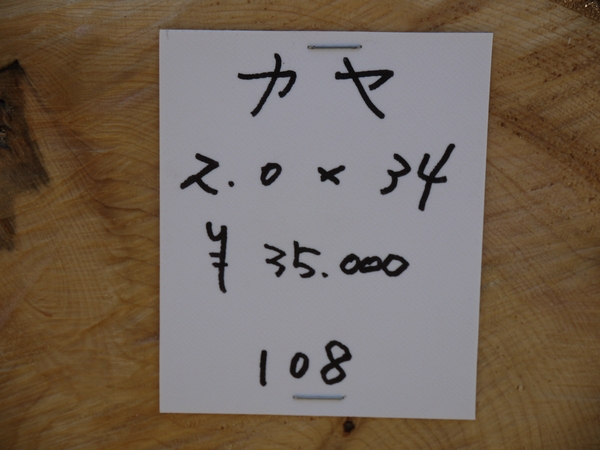 カヤ
2.0 × 34
¥ 35.000
108